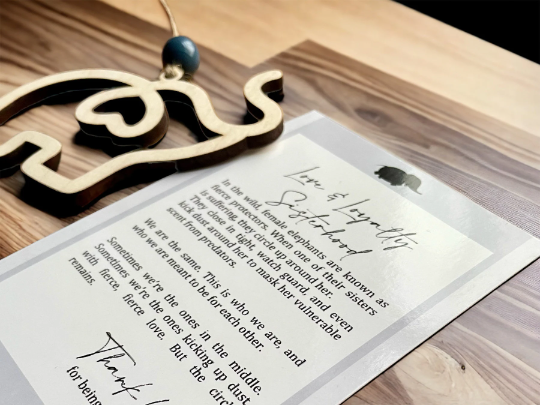 Love & Loyalty
Sisterhood
In the wild, female elephants are known as
fierce protectors. When one of their sisters
is suffering, they circle up around her.
They close in tight, watch guard, and even
kick dust around her to mask her vulnerable
scent from predators.
We are the same. This is who we are, and
who we are meant to be for each other.
Sometimes we're the ones in the middle.
Sometimes we're the ones kicking up dust
with fierce, fierce love. But the
remains.
Thank
for being